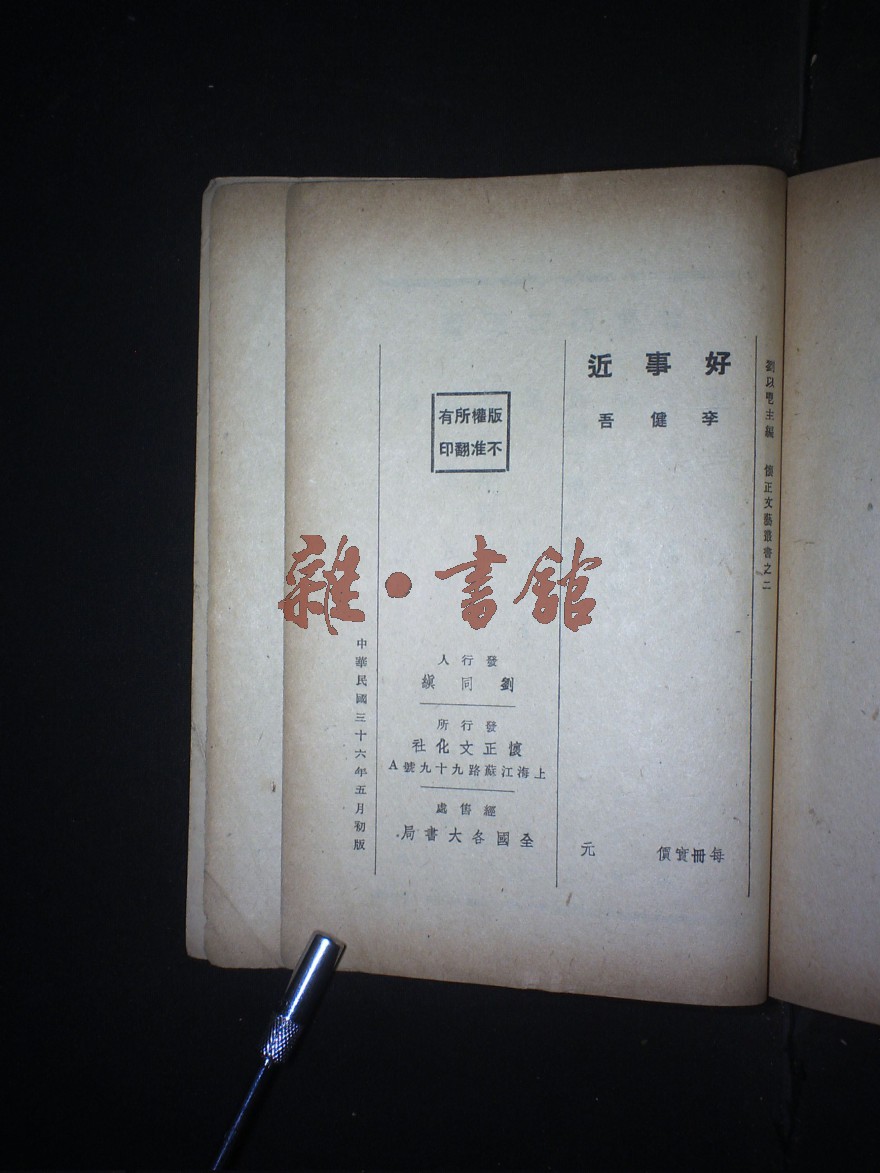 劉以鬯主編　懷正文藝叢書之二
好事近
李健吾
每冊實價　元
版權所有
不准翻印
發行人
劉同縝
發行所
懷正文化社
上海江蘇路九十九號A
經售處
全國各大書局
中華民國三十六年五月初版
雜·書館